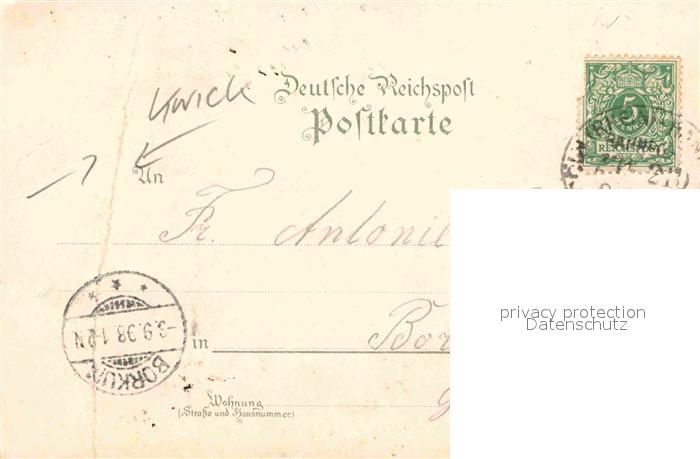 Deutsche Reichspost
Postkarte
Knick
An
Fr. Antonie
in Bor
Wohnung
(Straße und Hausnummer)
5
REICHSPOST
BAHNPOST
-3.9.98 1-2N
BORKUM
privacy protection
Datenschutz